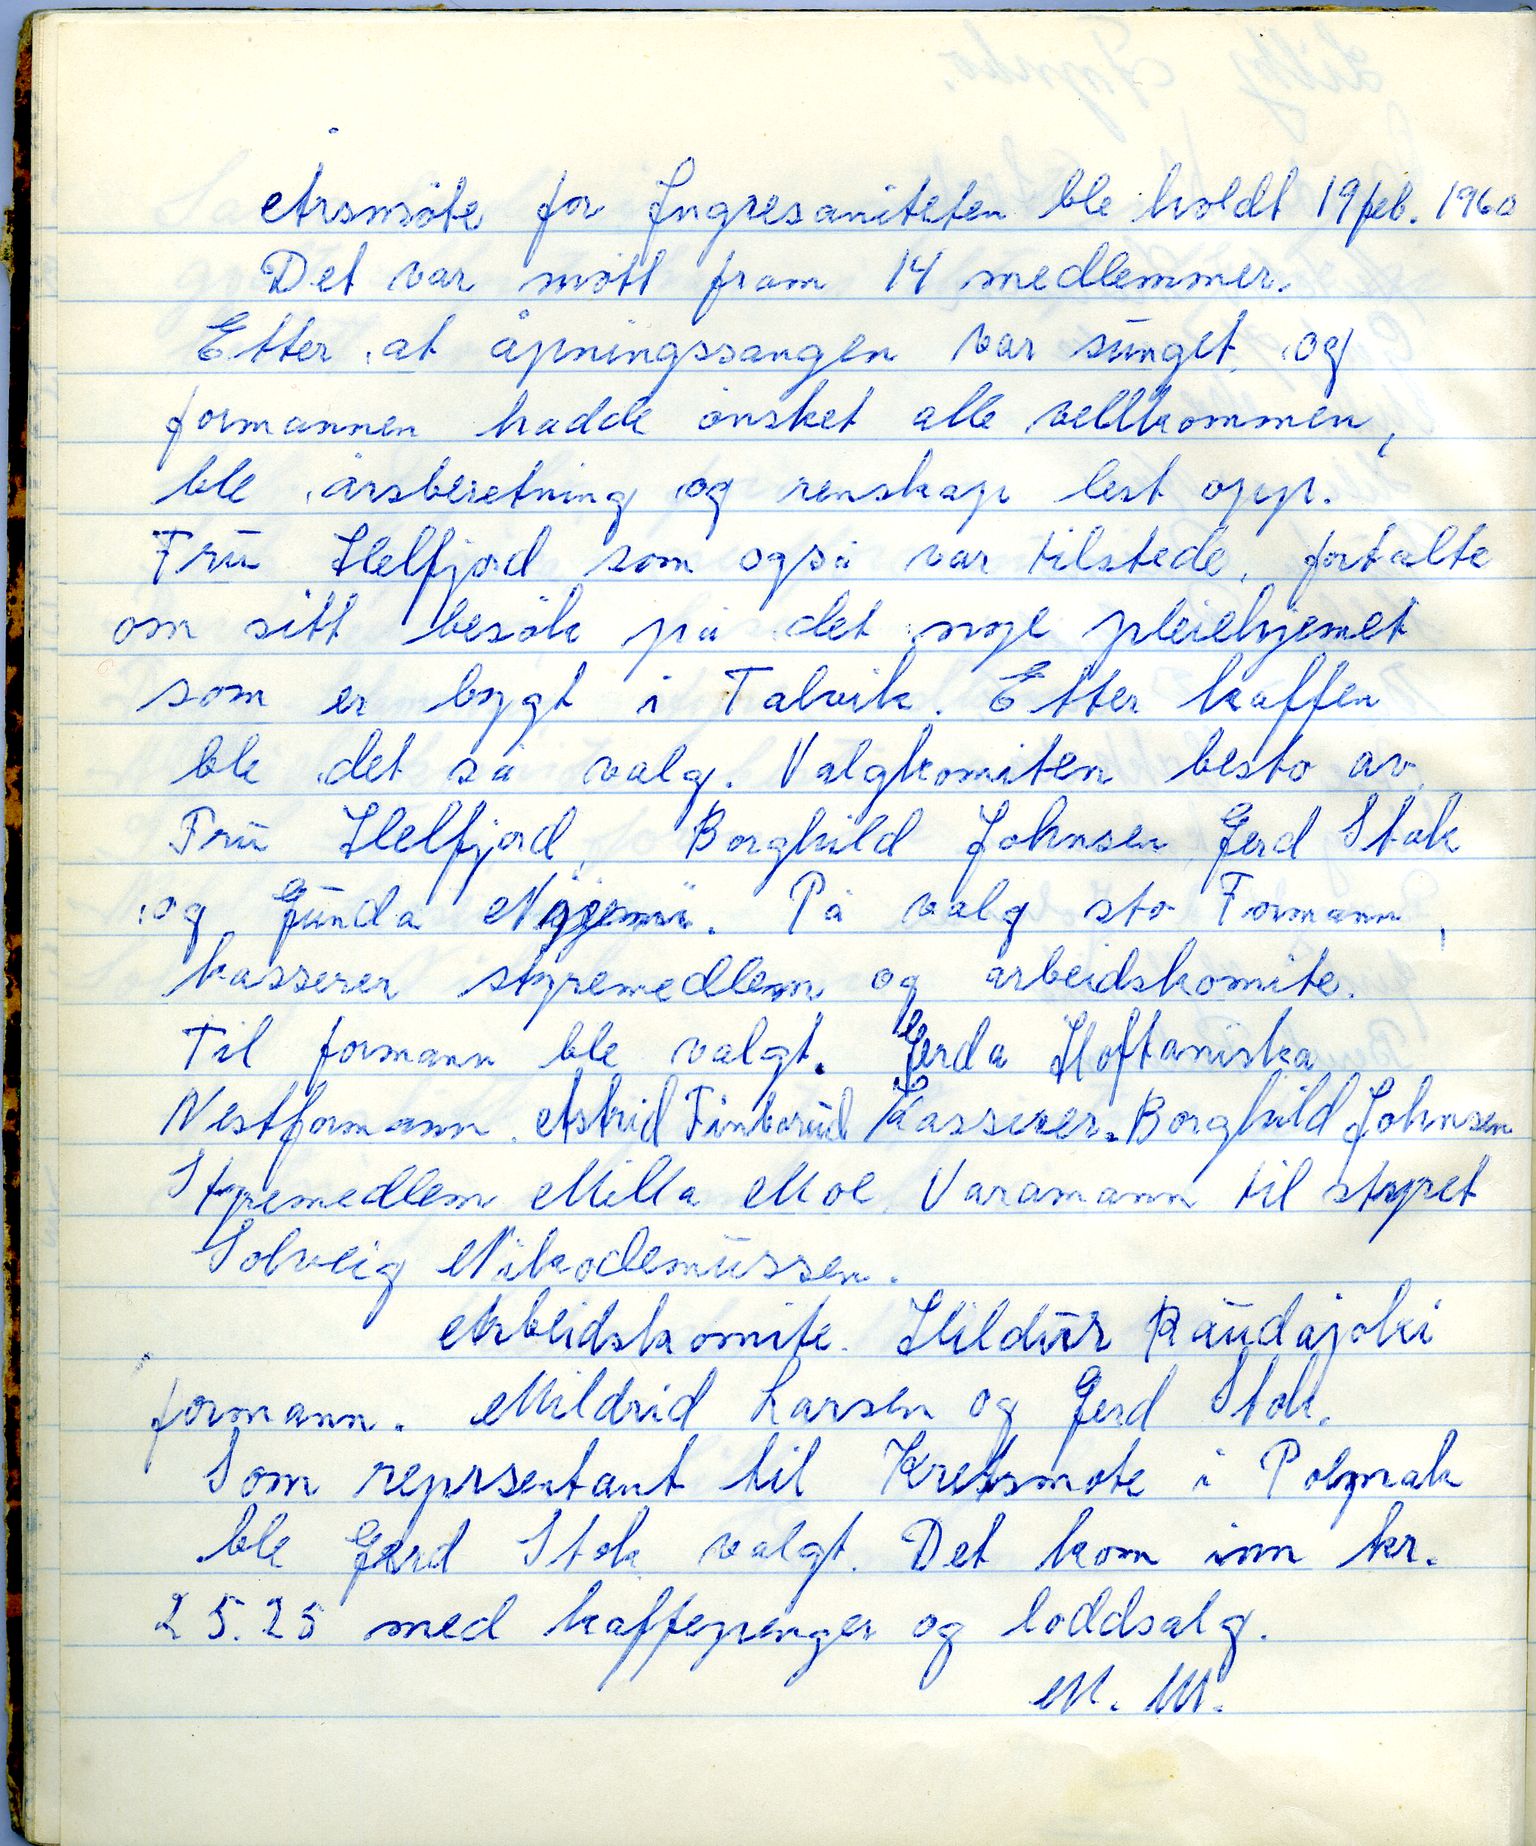 Årsmöte for Yngresaniteten ble holdt 19 feb. 1960
Det var møtt fram 14 medlemmer.
Etter at åpningssangen var sunget, og
formannen hadde ønsket alle vellkommen,
ble årsberetning og renskap lest opp.
Fru Helfjord som også var tilstede, fortalte
om sitt besøk på det nye pleiehjemet
som er bygt i Talvik. Etter kaffen
ble det så valg. Valgkomiten besto av
Fru Helfjord, Borghild Johnsen, Gerd Stok
og Gunda. På valg sto Formann,
kasserer styremedlem og arbeidskomite.
Til formann ble valgt. Gerda Hoftaniska
Nestformann. Astrid Finborud Kasserer. Borghild Johnsen
Styremedlem Milla Moe, Varamann til styret
Solveig Nikodemussen.
Arbeidskomite. Hildur Raudajoki
formann. Mildrid Larsen og Gerd Stok.
Som reprsentant til Kretsmøte i Polmak
ble Gerd Stok valgt. Det kom inn kr.
25.25 med kaffepenger og loddsalg.
M. M.